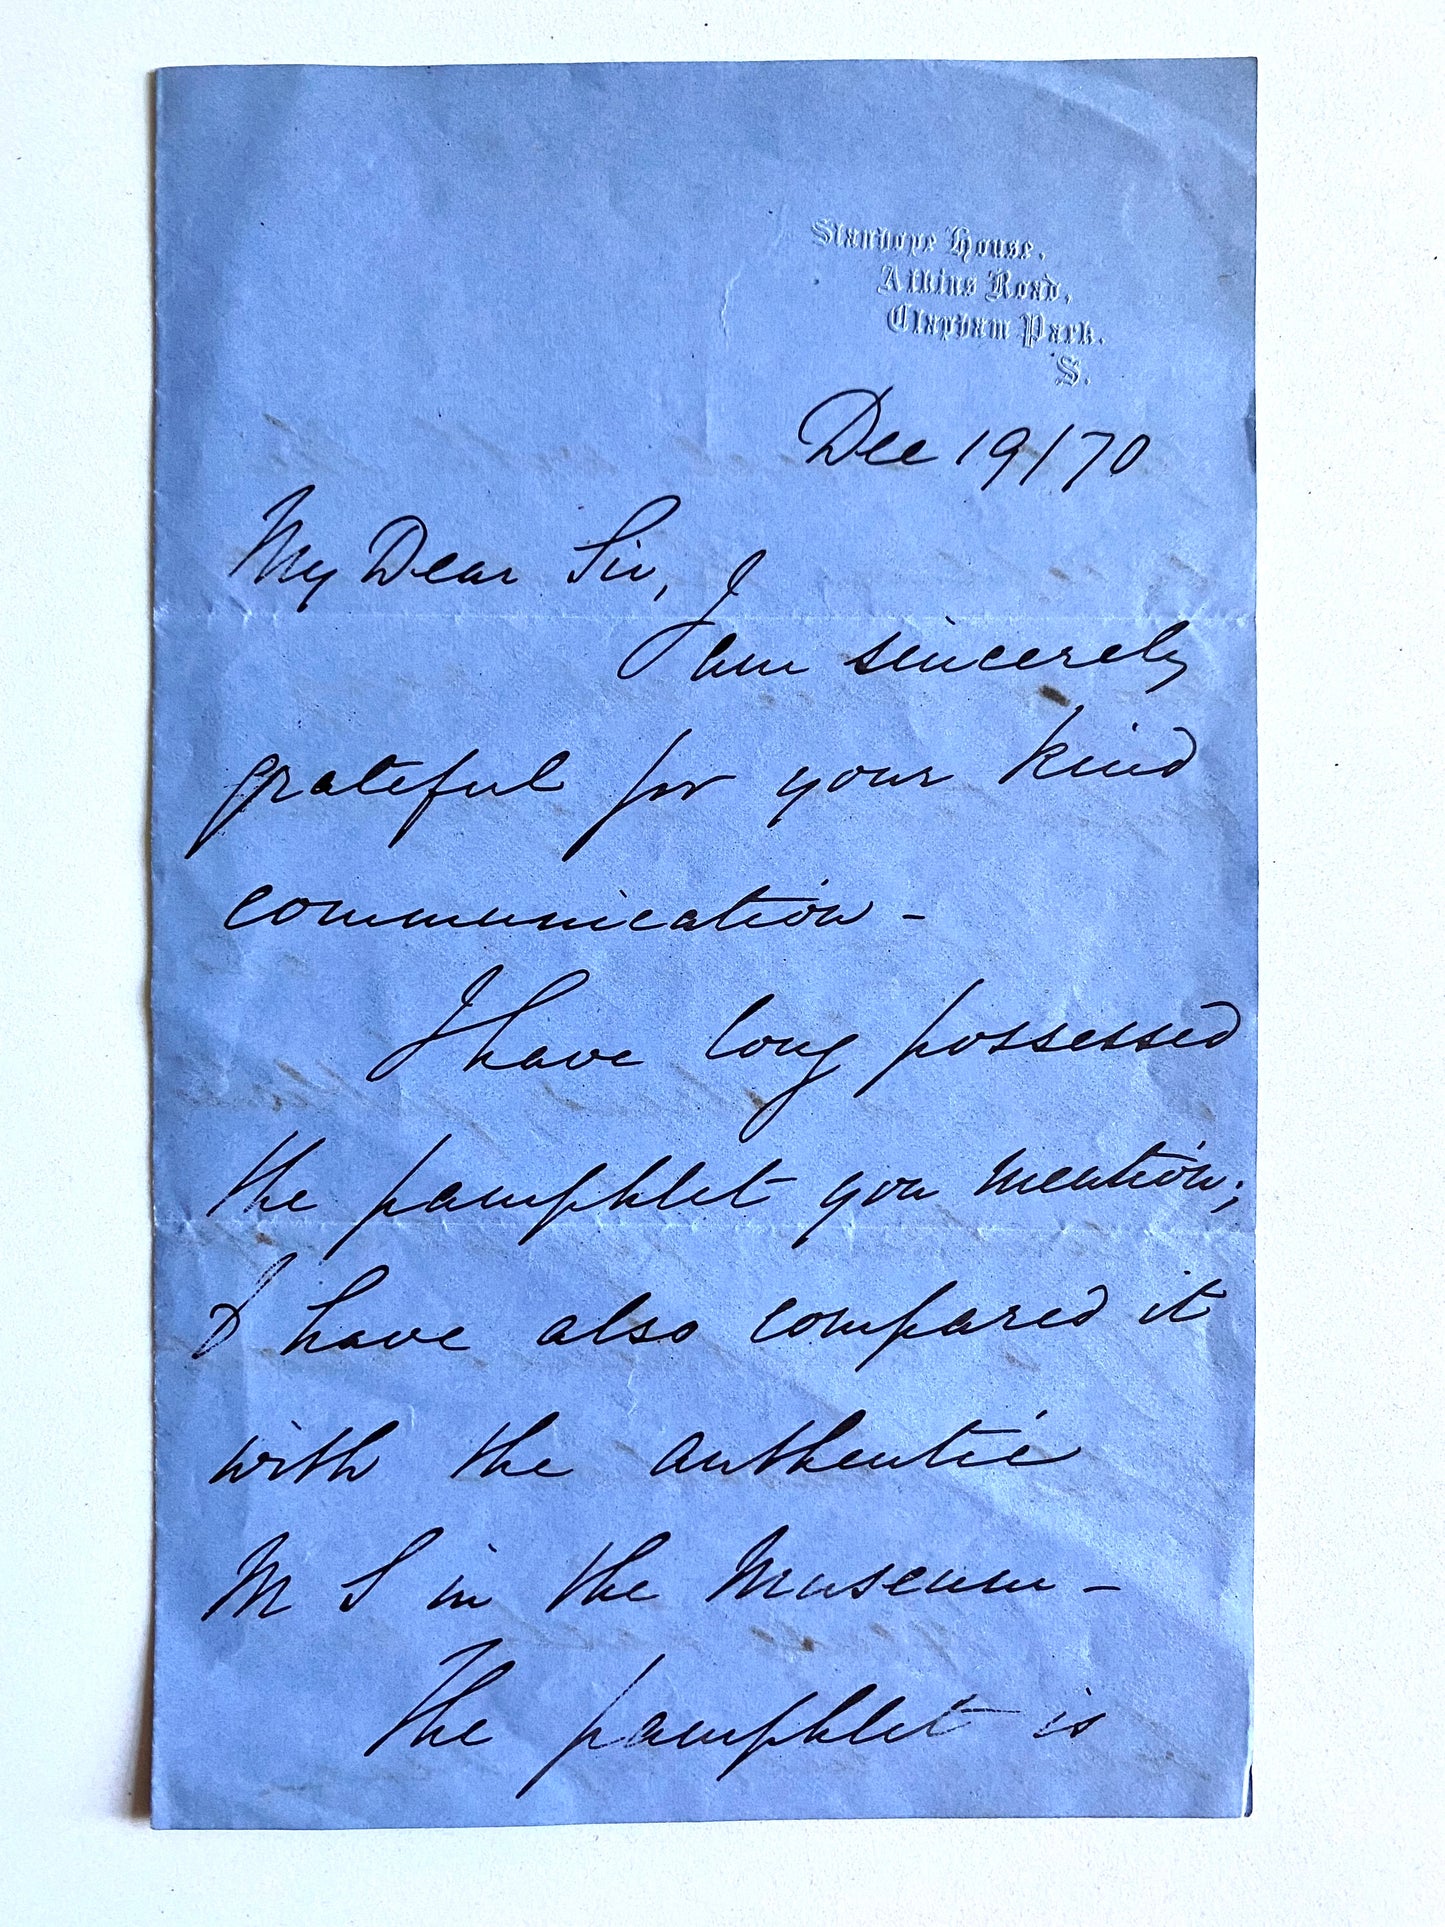 Stanhope House,
Atkins Road,
Clapham Park.
S.
Dec 19/70
My Dear Sir, I
am sincerely
grateful for your kind
communication -
I have long possessed
the pamphlet you mention;
I have also compared it
with the authentic
M S in the Museum -
The pamphlet is